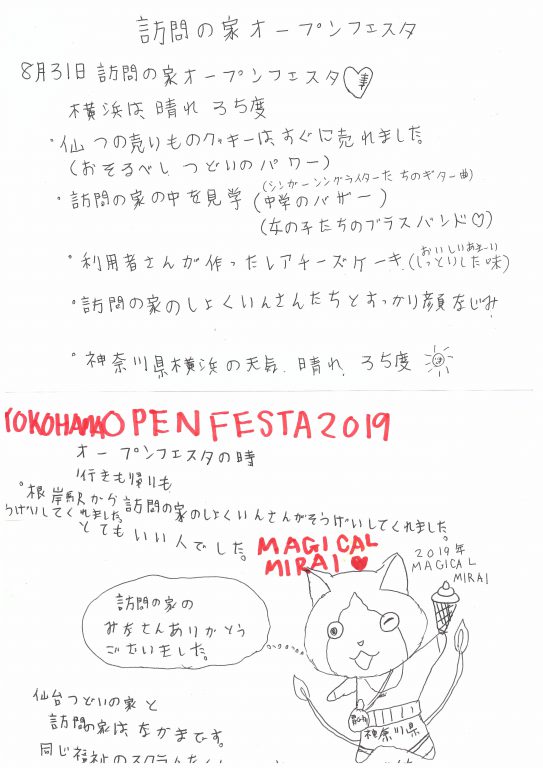 訪問の家オープンフェスタ
8月31日 訪問の家オープンフェスタ
横浜は 晴れ 35度
・仙 つの売りものクッキーは、すぐに売れました。
(おそるべし つどいのパワー)
・訪問の家の中を見学 (シンガーソングライターたちのギター曲)
(中学のバザー)
(女の子たちのブラスバンド♡)
・利用者さんが作ったレアチーズケーキ (しっとりした味)
・訪問の家のしょくいんさんたちとすっかり顔なじみ
・神奈川県横浜の天気 晴れ 35度
YOKOHAMA OPEN FESTA 2019
オープンフェスタの時
行きも帰りも
・根岸駅から訪問の家のしょくいんさんがそうげいしてくれました。
うげいしてくれました。
とてもいい人でした。
MAGICAL
MIRAI ♥
2019年
MAGICAL
MIRAI
訪問の家の
みなさんありがとう
ございました。
神奈川県
仙台つどいの家と
訪問の家はなかまです。
同じ福祉のスクラム